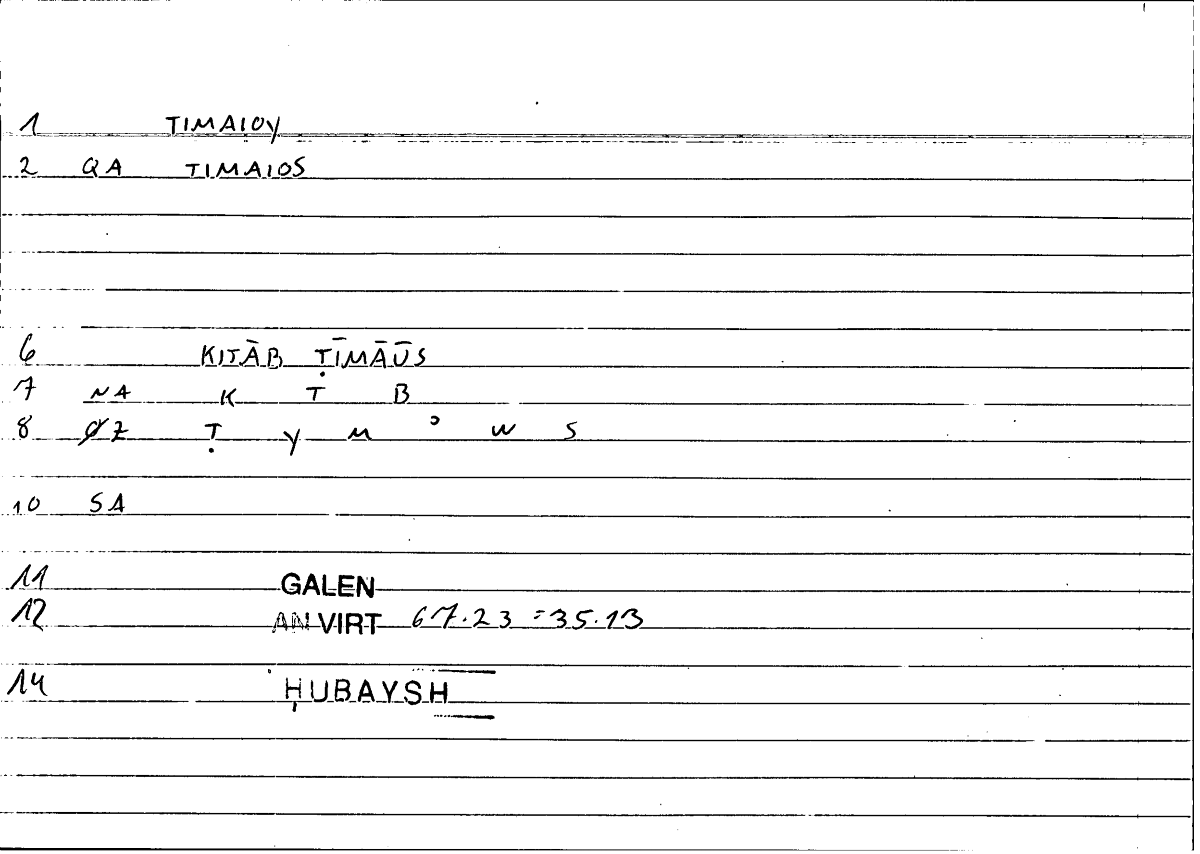 1 TIMAIOY
2 QA TIMAIOS
6 KITĀB ṬĪMĀŪS
7 NA K T B
8 ØZ Ṭ Y M ʾ W S
10 SA
11 GALEN
12 AN VIRT 67.23 = 35.13
14 ḤUBAYSH